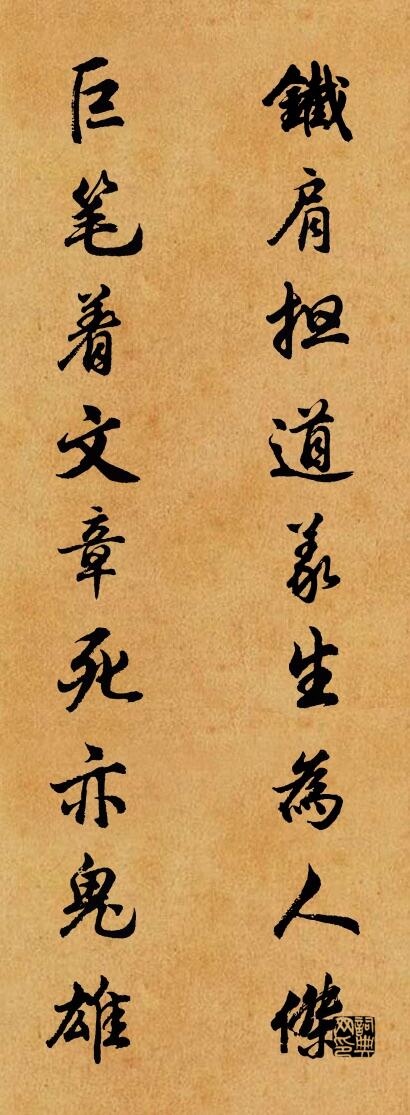 鐵肩担道義生為人傑
巨笔着文章死亦鬼雄